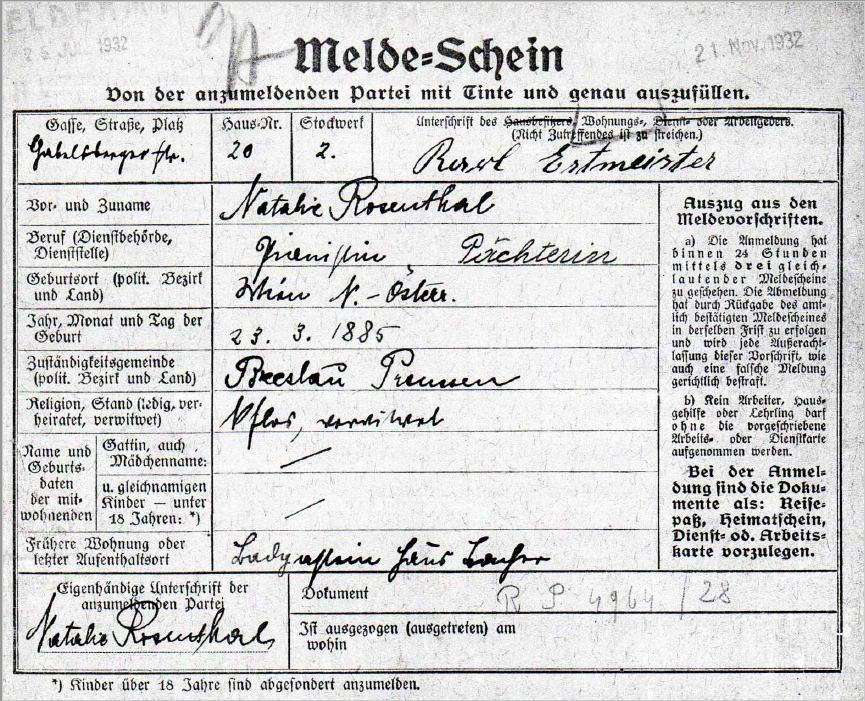 25. JUL 1932
21. NOV. 1932
Melde-Schein
Von der anzumeldenden Partei mit Tinte und genau auszufüllen.
Gasse, Straße, Platz
Gabelsbergerstr.
Haus-Nr.
20
Stockwerk
2.
Unterschrift des Hausbesitzers, Wohnungs-, Dienst- oder Arbeitgebers.
(Nicht Zutreffendes ist zu streichen.)
Ertmeister
Vor- und Zuname
Natalie Rosenthal
Beruf (Dienstbehörde,
Dienststelle)
Pianistin Pächterin
Geburtsort (polit. Bezirk
und Land)
Wien N.-Österr.
Jahr, Monat und Tag der
Geburt
23. 3. 1885
Zuständigkeitsgemeinde
(polit. Bezirk und Land)
Breslau Preussen
Religion, Stand (ledig, ver-
heiratet, verwitwet)
verwitwet
Name und
Geburts-
daten
der mit-
wohnenden
Gattin, auch
Mädchenname:
u. gleichnamigen
Kinder — unter
18 Jahren: *)
Frühere Wohnung oder
letzter Aufenthaltsort
Badgastein Haus
Auszug aus den
Meldevorschriften.
a) Die Anmeldung hat
binnen 24 Stunden
mittels drei gleich-
lautender Meldescheine
zu geschehen. Die Abmeldung
hat durch Rückgabe des amt-
lich bestätigten Meldescheines
in derselben Frist zu erfolgen
und wird jede Außeracht-
lassung dieser Vorschrift, wie
auch eine falsche Meldung
gerichtlich bestraft.
b) Kein Arbeiter, Haus-
gehilfe oder Lehrling darf
ohne die vorgeschriebene
Arbeits- oder Dienstkarte
aufgenommen werden.
Bei der Anmel-
dung sind die Doku-
mente als: Reise-
paß, Heimatschein,
Dienst- od. Arbeits-
karte vorzulegen.
Eigenhändige Unterschrift der
anzumeldenden Partei
Natalie Rosenthal
Dokument
R P 4964 / 28
Ist ausgezogen (ausgetreten) am
wohin
*) Kinder über 18 Jahre sind abgesondert anzumelden.